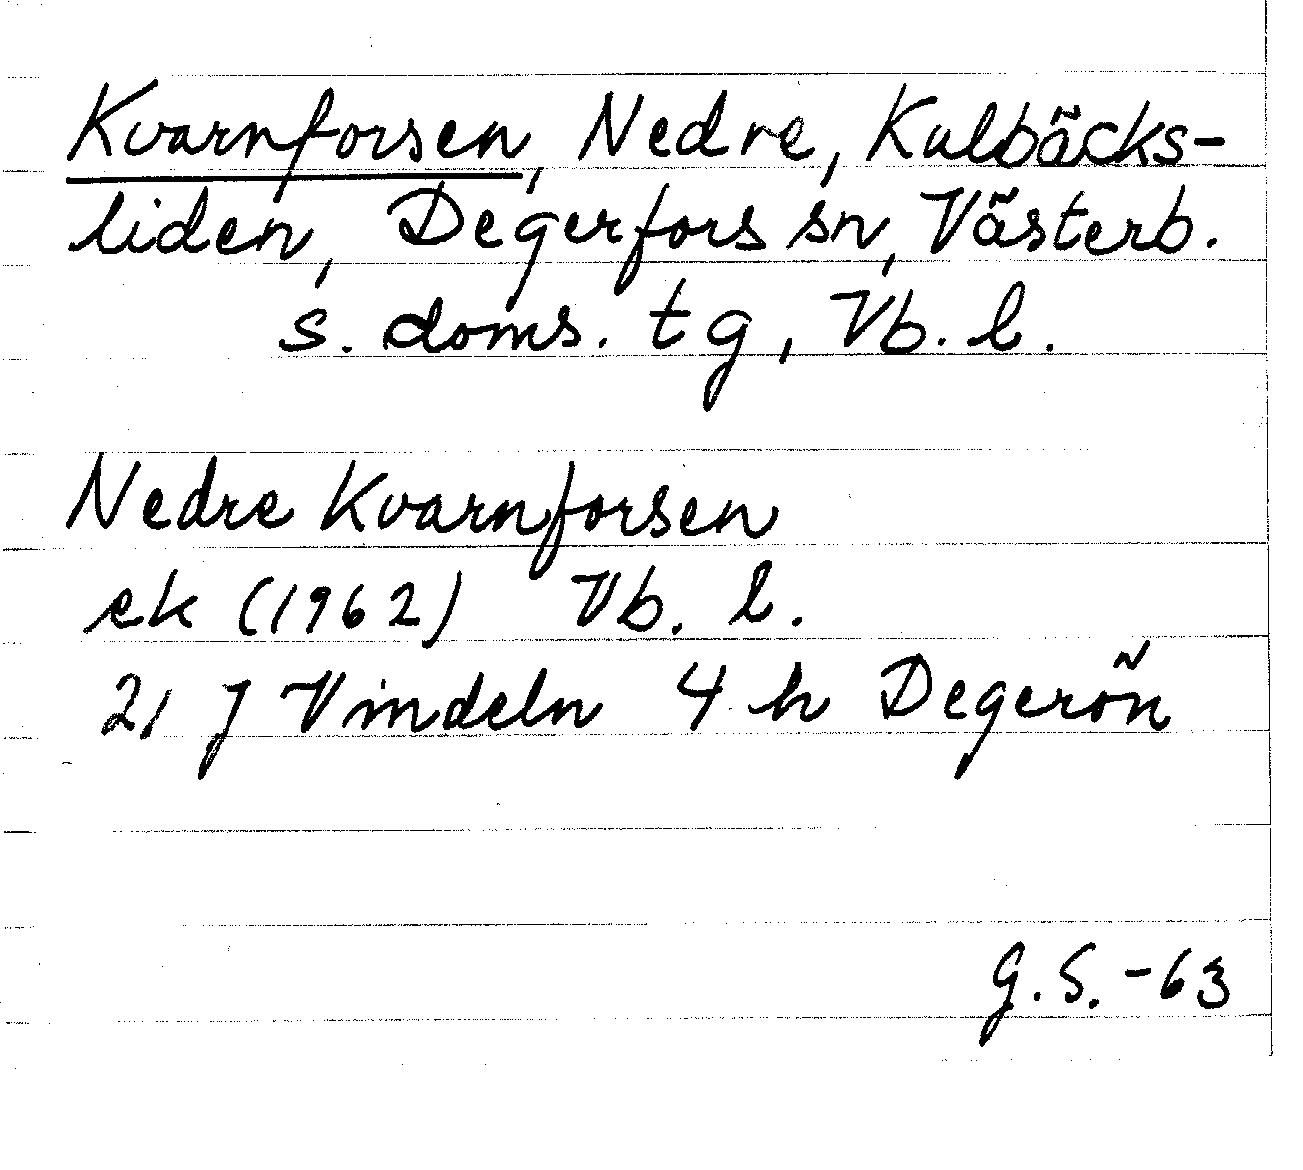 Kvarnforsen, Nedre, Kulbäcks-
liden, Degerfors sn, Västerb.
s. doms. tg, Vb. l.
Nedre Kvarnforsen
ek (1962) Vb. l.
21 J Vindeln 4 h Degerön
G.S. -63